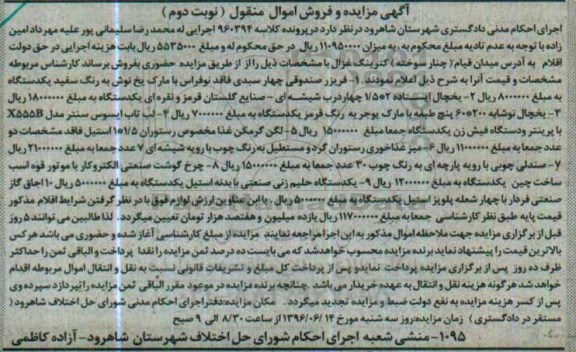 آگهی مزایده و فروش اموال منقول ( نوبت دوم )
اجرای احکام مدنی دادگستری شهرستان شاهرود در نظر دارد در پرونده کلاسه ۹۶۰۳۹۴ اجرایی له محمد رضا سلیمانی پور علیه مهرداد امین
زاده با توجه به عدم تادیه مبلغ محکوم به به میزان ۱۱۰۹۵۰۰۰۰ ریال در حق محکوم له و مبلغ ۵۵۳۵۰۰۰ ریال بابت هزینه اجرایی در حق دولت
اقلام به آدرس میدان قیام ( چنار سوخته ) کترینگ غزال با مشخصات ذیل را از از طریق مزایده حضوری بفروش برساند کارشناس مربوطه
مشخصات و قیمت آنرا به شرح ذیل اعلام نمودند ۱- فریزر صندوقی چهار سبدی فاقد نوفراس با مارک یخ نوش به رنگ سفید یکدستگاه
به مبلغ ۸۰۰۰۰۰۰ ریال ۲- یخچال ایستاده ۱/۵*۲ چهار درب شیشه ای - صنایع گلستان قرمز و نقره ای یکدستگاه به مبلغ ۱۸۰۰۰۰۰۰ ریال
۳- یخچال نوشابه ۲۰۰*۶۰ پنج طبقه با مارک یوجر به رنگ قرمز یکدستگاه به مبلغ ۷۰۰۰۰۰۰ ریال ۴- لپ تاپ ایسوس سنتر مدل X555B
با پرینتر و دستگاه فیش زن یکدستگاه جمعا مبلغ ۱۵۰۰۰۰۰۰ ریال ۵- لگن گرمکن غذا مخصوص رستوران ۱/۵*۱ استیل فاقد مشخصات دو
عدد جمعا به مبلغ ۱۱۰۰۰۰۰۰ ریال ۶- میز غذاخوری رستوران گرد و مستطیل به رنگ چوب با رویه شیشه ای ۷ عدد جمعا به مبلغ ۲۱۰۰۰۰۰۰ ریال
۷- صندلی چوبی با رویه پارچه ای به رنگ چوب ۳۰ عدد جمعا به مبلغ ۱۵۰۰۰۰۰۰ ریال ۸- چرخ گوشت صنعتی الکتروکار با موتور قوه اسب
ساخت چین یکدستگاه به مبلغ ۱۲۰۰۰۰۰۰ ریال ۹- یکدستگاه حلیم زنی صنعتی با بدنه استیل یکدستگاه به مبلغ ۵۰۰۰۰۰۰ ریال ۱۰- اجاق گاز
صنعتی فردار با چهار شعله پلوپز استیل یکدستگاه به مبلغ ۵۰۰۰۰۰۰ ریال با این عناوین ارزش لوازم فوق با در نظر گرفتن شرایط اقلام مذکور
قیمت پایه طبق نظر کارشناسی جمعا به مبلغ ۱۱۷۰۰۰۰۰۰ ریال یازده میلیون و هفتصد هزار تومان تعیین میگردد. لذا طالبین می توانند ۵ روز
قبل از برگزاری مزایده جهت ملاحظه اموال مذکور به این اجرا مراجعه نمایند مزایده از مبلغ کارشناسی آغاز شده و حضوری می باشد هر کس
بالاترین قیمت را پیشنهاد نماید برنده مزایده محسوب خواهد شد که می بایست ده درصد ثمن مزایده را نقدا پرداخت و الباقی ثمن را حداکثر
ظرف ده روز پس از برگزاری مزایده پرداخت نماید و پس از پرداخت کل مبلغ و تشریفات قانونی نسبت به نقل و انتقال اموال مربوطه اقدام
خواهد شد هر گونه هزینه نقل و انتقال به عهده خریدار می باشد. چنانچه برنده مزایده در موعود مقرر الباقی ثمن مزایده را نپردازد سپرده وی
پس از کسر هزینه مزایده به نفع دولت ضبط و مزایده تجدید میگردد. مکان مزایده: دفتر اجرای احکام مدنی شورای حل اختلاف شاهرود (
مستقر در دادگستری ) زمان مزایده: روز سه شنبه مورخ ۱۳۹۶/۰۶/۱۴ از ساعت ۸/۳۰ الی ۹ صبح
۱۰۹۵- منشی شعبه اجرای احکام شورای حل اختلاف شهرستان شاهرود- آزاده کاظمی